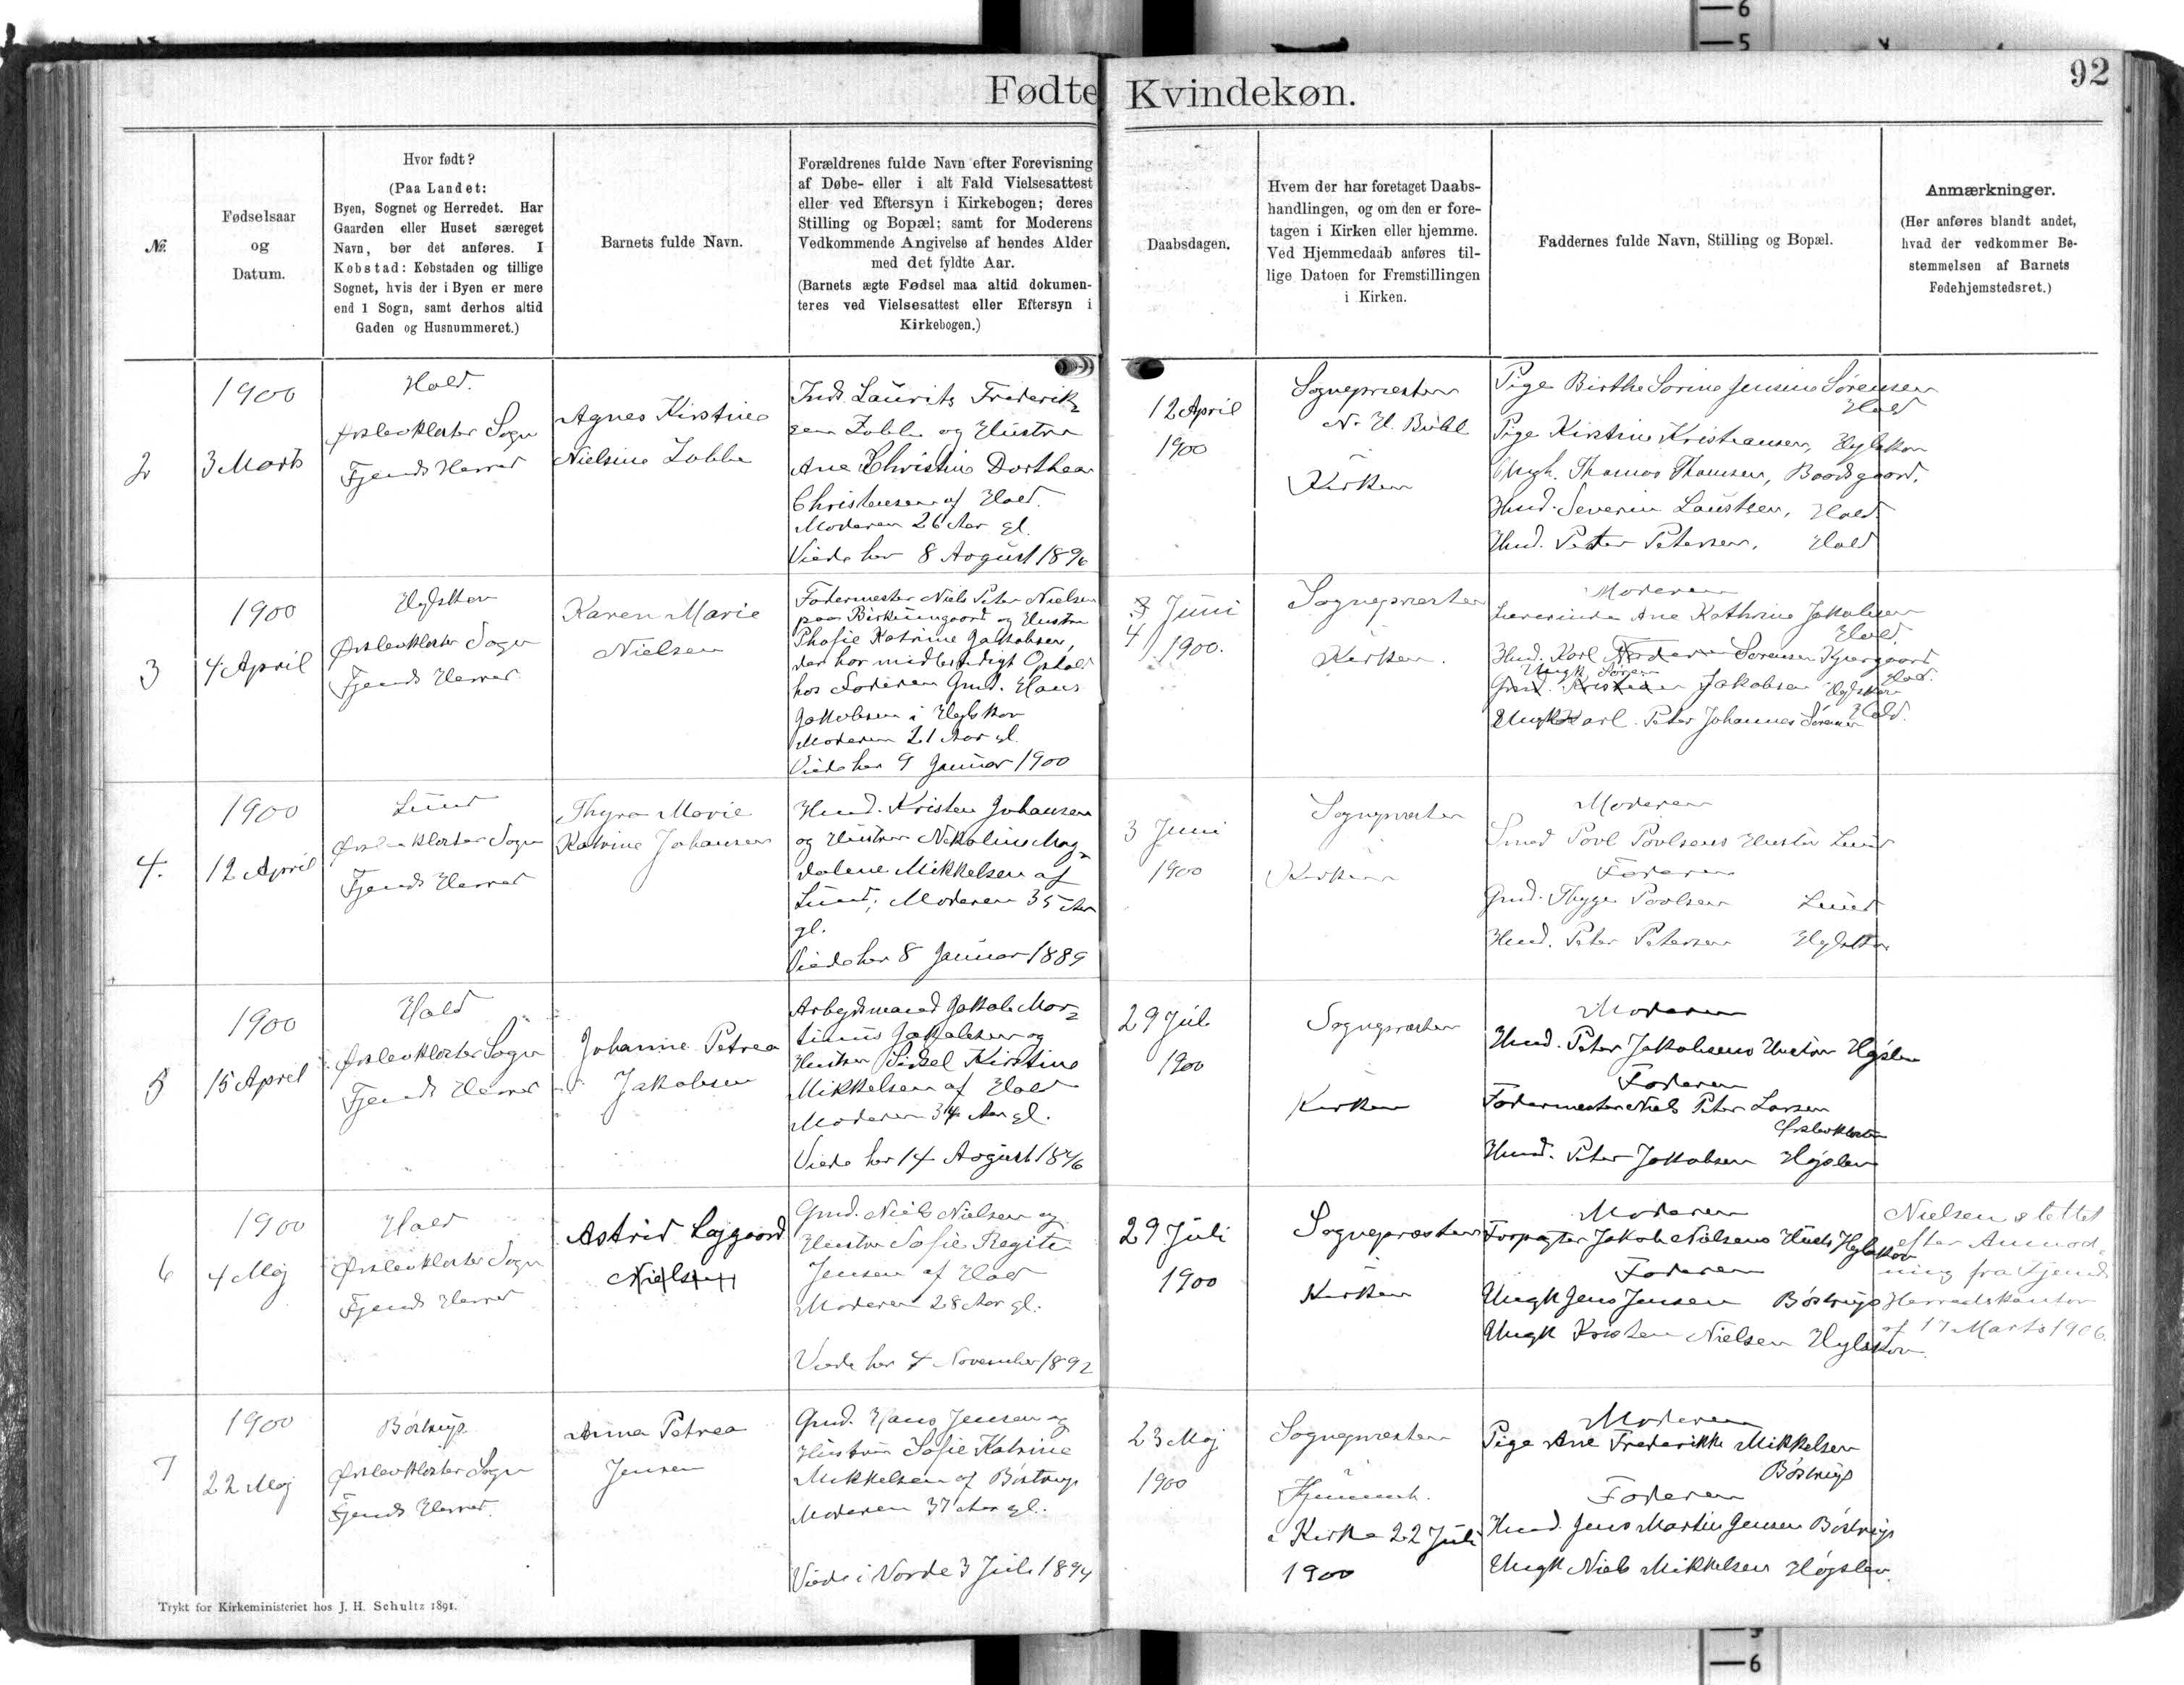 Fødte Kvindekøn.
92
№.
Fødselsaar
og
Datum.
Hvor født?
(Paa Landet:
Byen, Sognet og Herredet. Har
Gaarden eller Huset særeget
Navn, bør det anføres. I
Købstad: Købstaden og tillige
Sognet, hvis der i Byen er mere
end 1 Sogn, samt derhos altid
Gaden og Husnummeret.)
Barnets fulde Navn.
Forældrenes fulde Navn efter Forevisning
af Døbe- eller i alt Fald Vielsesattest
eller ved Eftersyn i Kirkebogen; deres
Stilling og Bopæl; samt for Moderens
Vedkommende Angivelse af hendes Alder
med det fyldte Aar.
(Barnets ægte Fødsel maa altid dokumen-
teres ved Vielsesattest eller Eftersyn i
Kirkebogen.)
Daabsdagen.
Hvem der har foretaget Daabs-
handlingen, og om den er fore-
tagen i Kirken eller hjemme.
Ved Hjemmedaab anføres til-
lige Datoen for Fremstillingen
i Kirken.
Faddernes fulde Navn, Stilling og Bopæl.
Anmærkninger.
(Her anføres blandt andet,
hvad der vedkommer Be-
stemmelsen af Barnets
Fødehjemstedsret.)
2
1900
3 Marts
Hald.
Ørslevkloster Sogn
Fjends Herred
Agnes Kirstine
Nielsine Lobbe
Inds. Laurits Frederik-
sen Lobbe og Hustru
Ane Christine Dorthea
Christensen af Hald.
Moderen 26 Aar gl.
Viede her 8 August 1896
12 April
1900
Sognepræsten
N. H. Buhl
Kirken
Pige Birthe Sorine Jensine Sørensen
Hald
Pige Kirstine Kristiansen, Hylskov
Ungk. Thomas Thomsen, Baadsgaard.
Hmd. Severin Laustsen, Hald.
Hmd. Peter Petersen, Hald
3
1900
4 April
Hylskov
Ørslevkloster Sogn
Fjends Herred
Karen Marie
Nielsen
Fodermester Niels Peter Nielsen
paa Birkumgaard og Hustru
Phosie Katrine Jakobsen,
der har midlertidigt Ophold
hos Faderen Gmd. Hans
Jakobsen i Hylskov
Moderen 21 Aar gl.
Viede her 9 Januar 1900
3 Juni
4
1900.
Sognepræsten
Kirken.
Moderen
Lærerinde Ane Kathrine Jakobsen
Hald.
Hmd. Karl Sørensen Kjærgaard
Hald.
Ungk. Søren
Jakobsen Hylskov
Ungk. Karl Peter Johannes Sørensen Hald.
4.
1900
12 April
Lund
Ørslevkloster Sogn
Fjends Herred
Thyra Marie
Katrine Johansen
Hmd. Kristen Johansen
og Hustru Nikoline Mag-
dalene Mikkelsen af
Lund; Moderen 35 Aar
gl.
Viede her 8 Januar 1889
3 Juni
1900
Sognepræsten
Kirken
Moderen
Smed Povl Povlsens Hustru Lund
Faderen
Gmd. Thyge Povlsen Lund
Hmd. Peter Petersen Hylskov
5
1900
15 April
Hald
Ørslevkloster Sogn
Fjends Herred
Johanne Petrea
Jakobsen
Arbejdsmand Jakob Mar-
tinus Jakobsen og
Hustru Sidsel Kirstine
Mikkelsen af Hald
Moderen 34 Aar gl.
Viede her 14 August
29 Juli
1900
Sognepræsten
Kirken
Moderen
Hmd. Peter Jakobsens Hustru Højslev
Faderen
Fodermester Niels Peter Larsen
Ørslevkloster
Hmd. Peter Jakobsen Højslev
6
1900
4 Maj
Hald
Ørslevkloster Sogn
Fjends Herred
Astrid Lajgaard
Nielsen
Gmd. Niels Nielsen og
Hustru Sofie Regite
Jensen af Hald
Moderen 28 Aar gl.
Viede her 4 November 1892
29 Juli
1900
Sognepræsten
Kirken
Moderen
Forpagter Jakob Nielsens Hustru Hylskov
Faderen
Ungk Jens Jensen Bøstrup
Ungk Kristen Nielsen Hylskov
Nielsen slettet
efter Anmod-
ning fra Fjends
Herredskontor
af 17 Marts 1906.
7
1900
22 Maj
Bøstrup
Ørslevkloster Sogn
Fjends Herred.
Anna Petrea
Jensen
Gmd. Hans Jensen og
Hustru Sofie Katrine
Mikkelsen af Bøstrup
Moderen 37 Aar gl.
Viede i Vorde 3 Juli 1894
23 Maj
1900
Sognepræsten
Hjemmed.
i Kirke 22 Juli
1900
Moderen
Pige Ane Frederikke Mikkelsen
Bøstrup
Faderen
Hmd. Jens Martin Jensen Bøstrup
Ungk Niels Mikkelsen Højslev.
Trykt for Kirkeministeriet hos J. H. Schultz 1891.
6
5
5
6